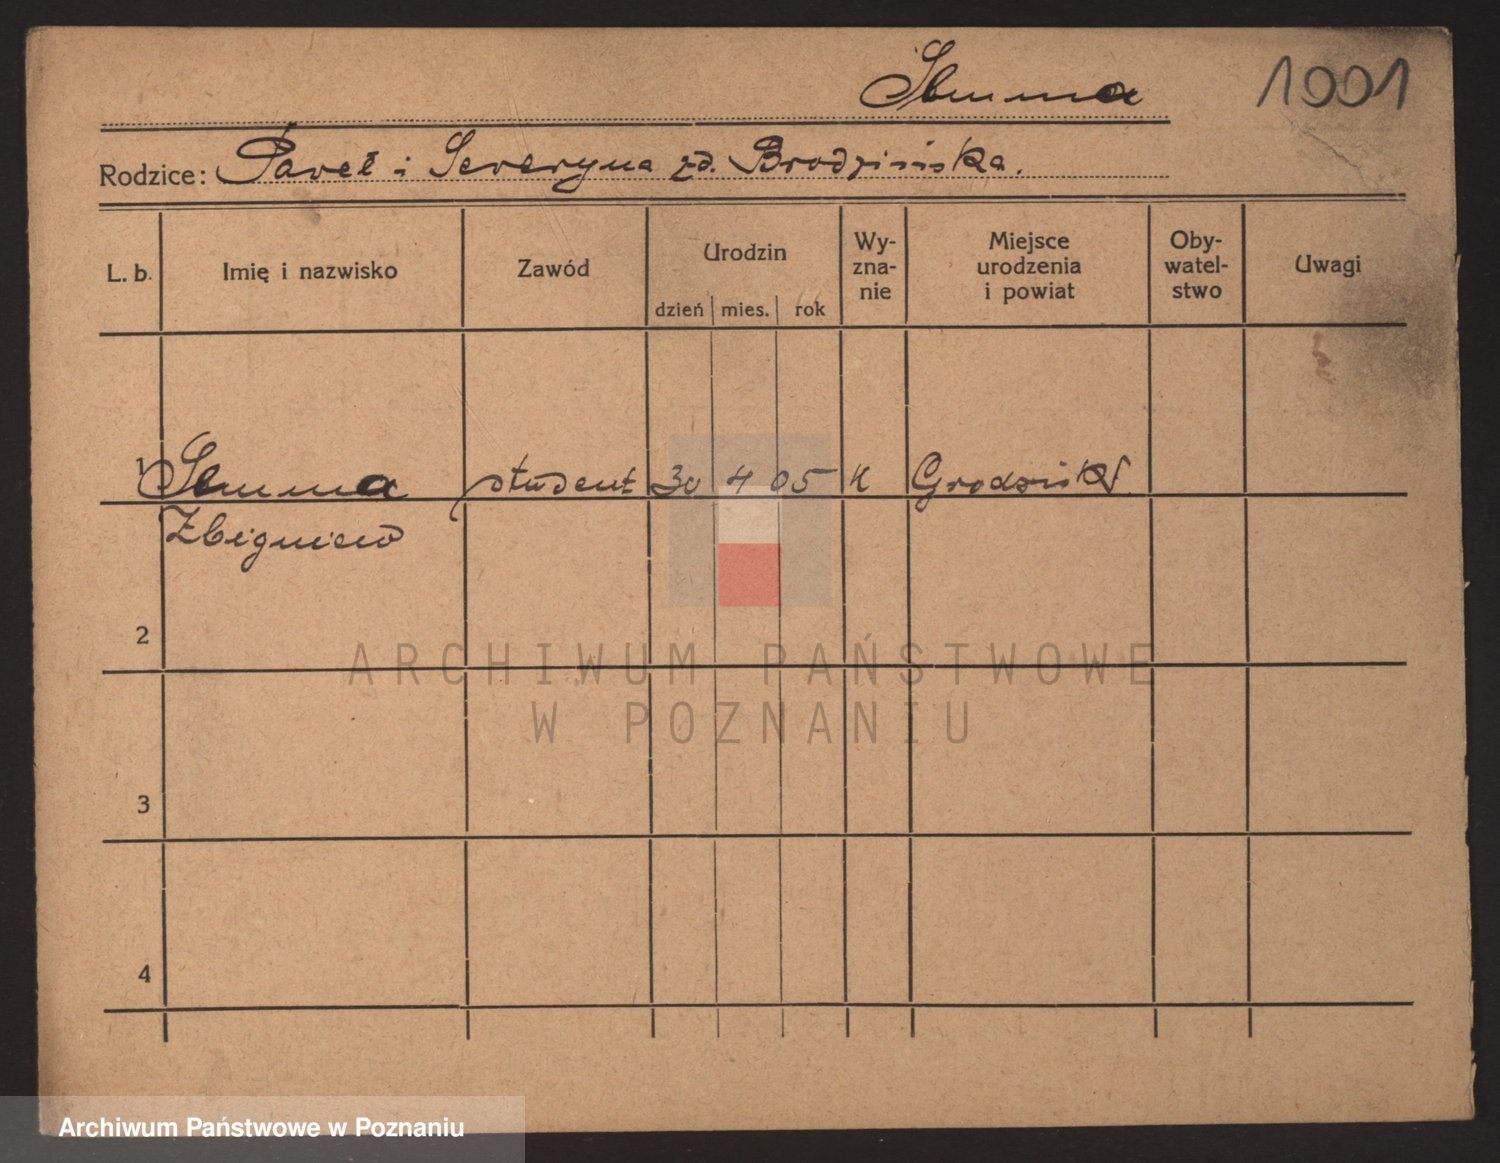 Słumma 1001
Rodzice: Paweł i Seweryna zd. Brodzińska.
L. b. Imię i nazwisko Zawód Urodzin Wy- Miejsce Oby- Uwagi
zna- urodzenia watel-
nie i powiat stwo
dzień mies. rok
1 student 30 4 05 K Grodzisk
Zbigniew
2
ARCHIWUM PAŃSTWOWE
W POZNANIU
3
4
Archiwum Państwowe w Poznaniu